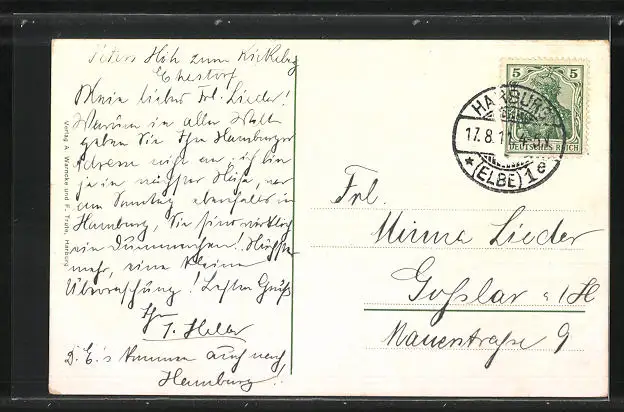 Peters Höh zum Kiekeberg
Ehestorf
Mein liebes Frl. Lieder!
Warum in aller Welt
geben Sie Ihre Hamburger
Adresse nicht an, ich bin
ja in nächster Nähe, war
am Sonntag ebenfalls in
Hamburg, Sie sind wirklich
ein Dummchen! Nächstes
mehr, eine kleine
Überraschung! Besten Gruß
Ihr
T. Heller
D. E.'s kommen auch nach
Hamburg!
Verlag A. Warncke und F. Truhe, Harburg
5 5
DEUTSCHES REICH
HARBURG
17.8.1
* (ELBE) 1e
Frl.
Minna Lieder
Goßlar a/H
Mauerstraße 9